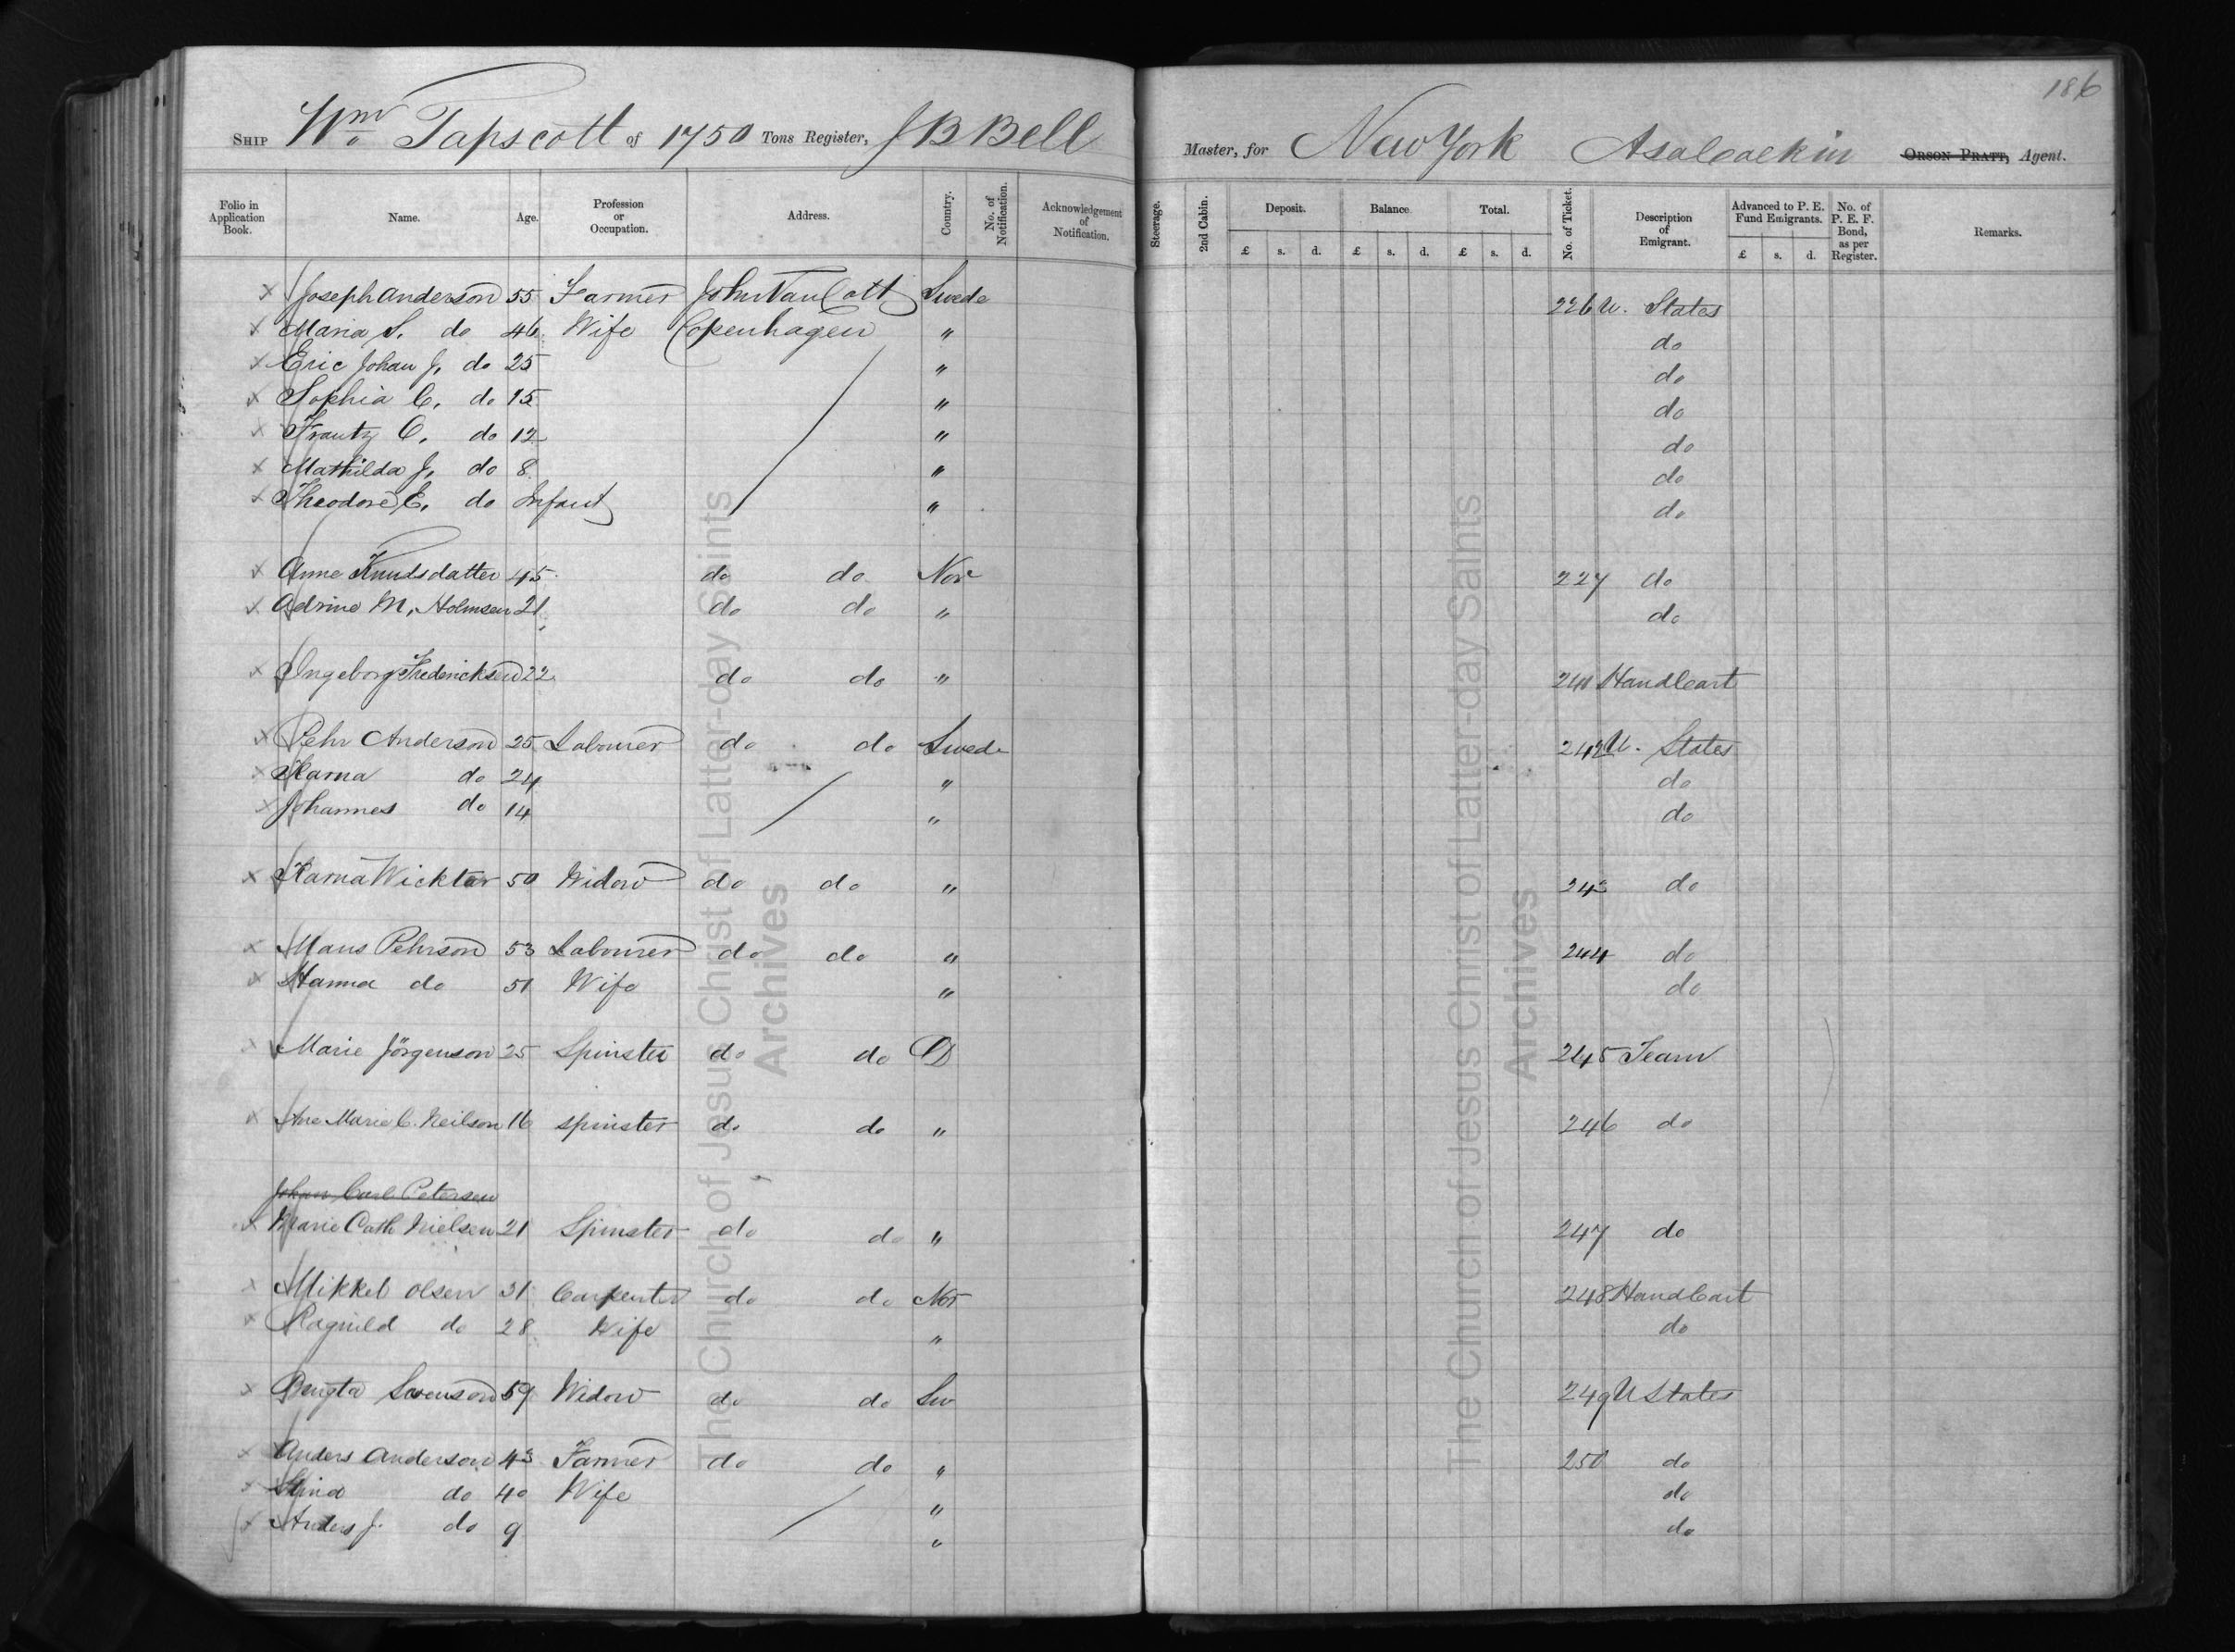 186
SHIP Wm Tapscott of 1750 Tons Register, J B Bell Master, for New York Asa Calkin ORSON PRATT, Agent.
Folio in Application Book. Name. Age. Profession or Occupation. Address. Country. No. of Notification. Acknowledgement of Notification. Steerage. 2nd Cabin. Deposit. Balance. Total. No. of Ticket. Description of Emigrant. Advanced to P. E. Fund Emigrants. No. of P. E. F. Bond, as per Register. Remarks.
£ s. d. £ s. d. £ s. d. £ s. d.
x Joseph Anderson 55 Farmer John Van Cott Swede 226 U. States
x Maria S. do 46 Wife Copenhagen " do
x Eric Johan J. do 25 " do
x Sophia C. do 15 " do
x Frantz O. do 12 " do
x Mathilda J. do 8 " do
x Theodore E. do Infant " do
x Anne Knudsdatter 45 do do Nor 227 do
x Adrine M. Holmsen 21 do do " do
x Ingeborg Fredericksen 22 do do " 241 HandCart
x Pehr Anderson 25 Labourer do do Swede 242 U. States
x Karna do 24 " do
x Johannes do 14 " do
x Karna Wicktor 50 Widow do do " 243 do
x Mans Pehrson 53 Labourer do do " 244 do
x Hanna do 51 Wife " do
x Marie Jörgenson 25 Spinster do do D 245 Team
x Ane Marie C. Neilson 16 spinster do do " 246 do
Johan Carl Petersen
x Marie Cath Nielsen 21 Spinster do do " 247 do
x Mikkel Olsen 31 Carpenter do do Nor 248 HandCart
x Ragnild do 28 Wife " do
x Bengta Swenson 59 Widow do do Sw 249 U States
x Anders Anderson 43 Farmer do do " 250 do
x Stina do 40 Wife " do
x Anders J. do 9 " do
The Church of Jesus Christ of Latter-day Saints
Archives
The Church of Jesus Christ of Latter-day Saints
Archives